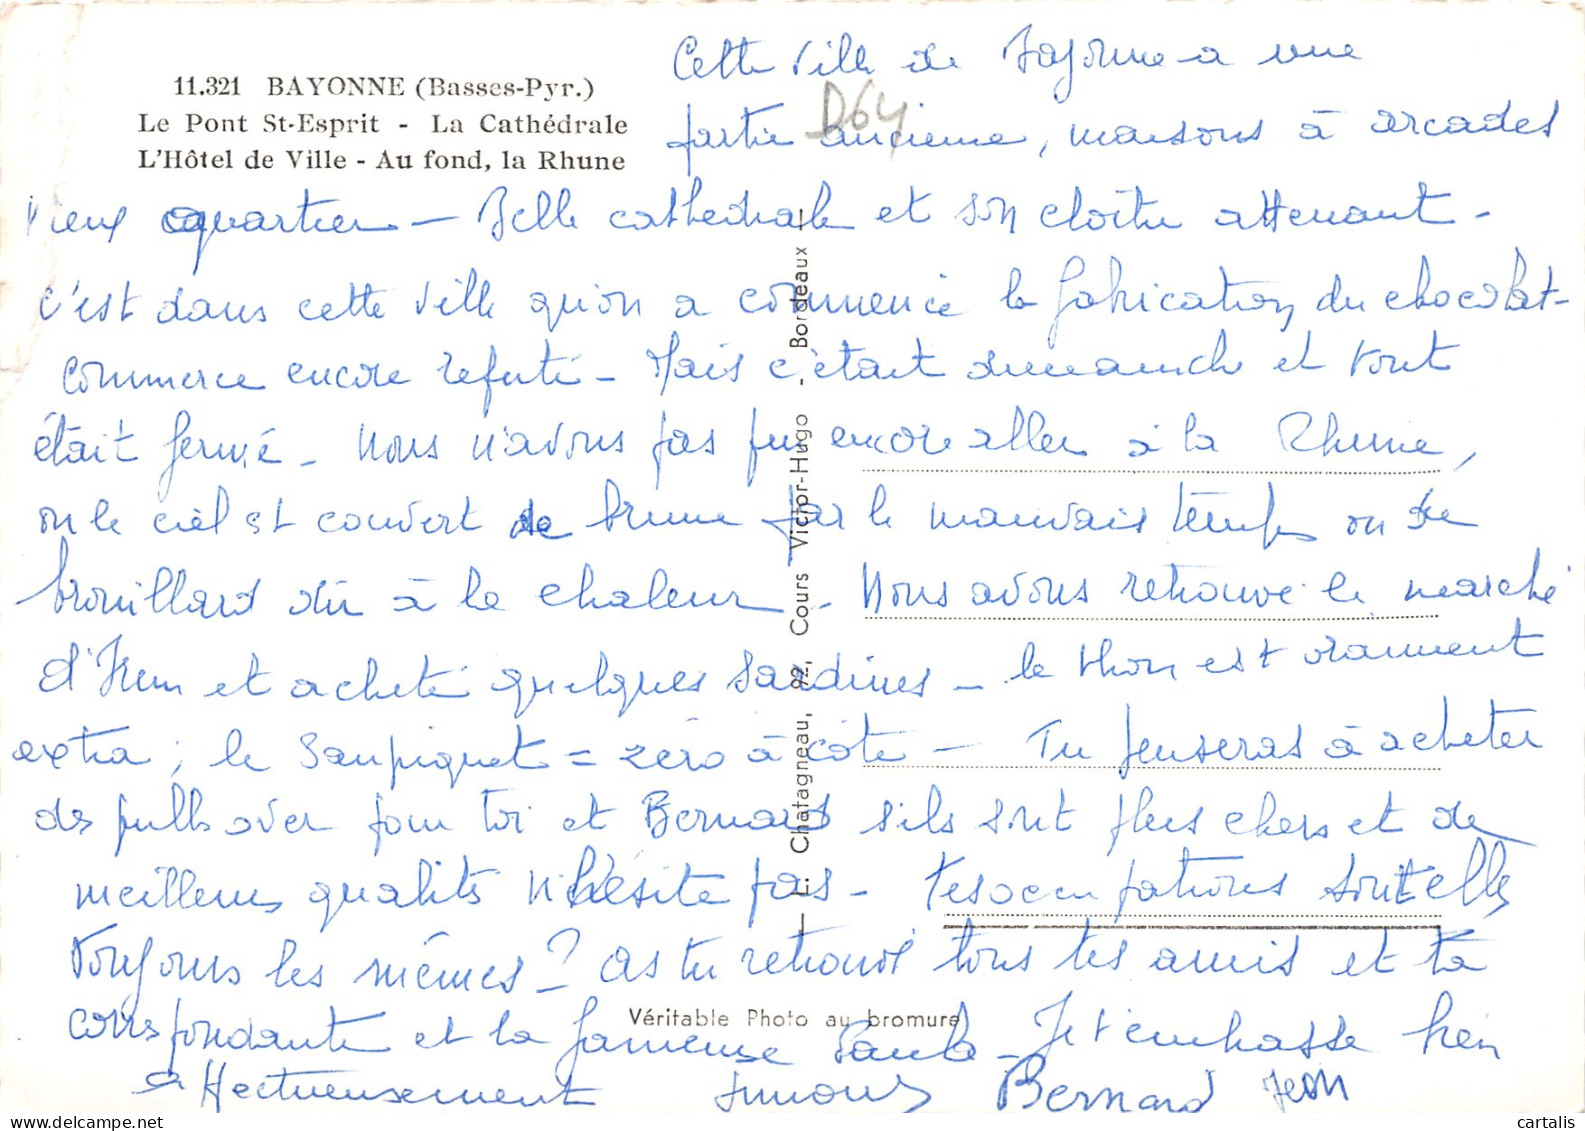 11.321 BAYONNE (Basses-Pyr.)
Le Pont St-Esprit - La Cathédrale
L'Hôtel de Ville - Au fond, la Rhune
D64
Cette ville de Bayonne a une
partie ancienne, maisons à arcades
vieux quartier - Belle cathedrale et son cloître attenant -
C'est dans cette ville qu'on a commencé la fabrication du chocolat -
Commerce encore réputé - Mais c'était dimanche et tout
était fermé - Nous n'avons pas pu encore aller à la Rhune,
ou le ciel est couvert de brume par le mauvais temps ou de
brouillard dû à la chaleur - Nous avons retrouvé le marché
d' et acheté quelques sardines - le thon est vraiment
extra ; le Saupiquet = zéro à côté - Tu penseras à acheter
des pulls over pour toi et Bernard s'ils sont plus chers et de
meilleure qualité n'hésite pas - Tes occupations sont elles
toujours les mêmes ? as tu retrouvé tous tes amis et ta
correspondante et la fameuse Paula - Je t'embrasse bien
affectueusement Simone Bernard Jean
E. Chatagneau, 92, Cours Victor-Hugo - Bordeaux -
Véritable Photo au bromure
cartalis